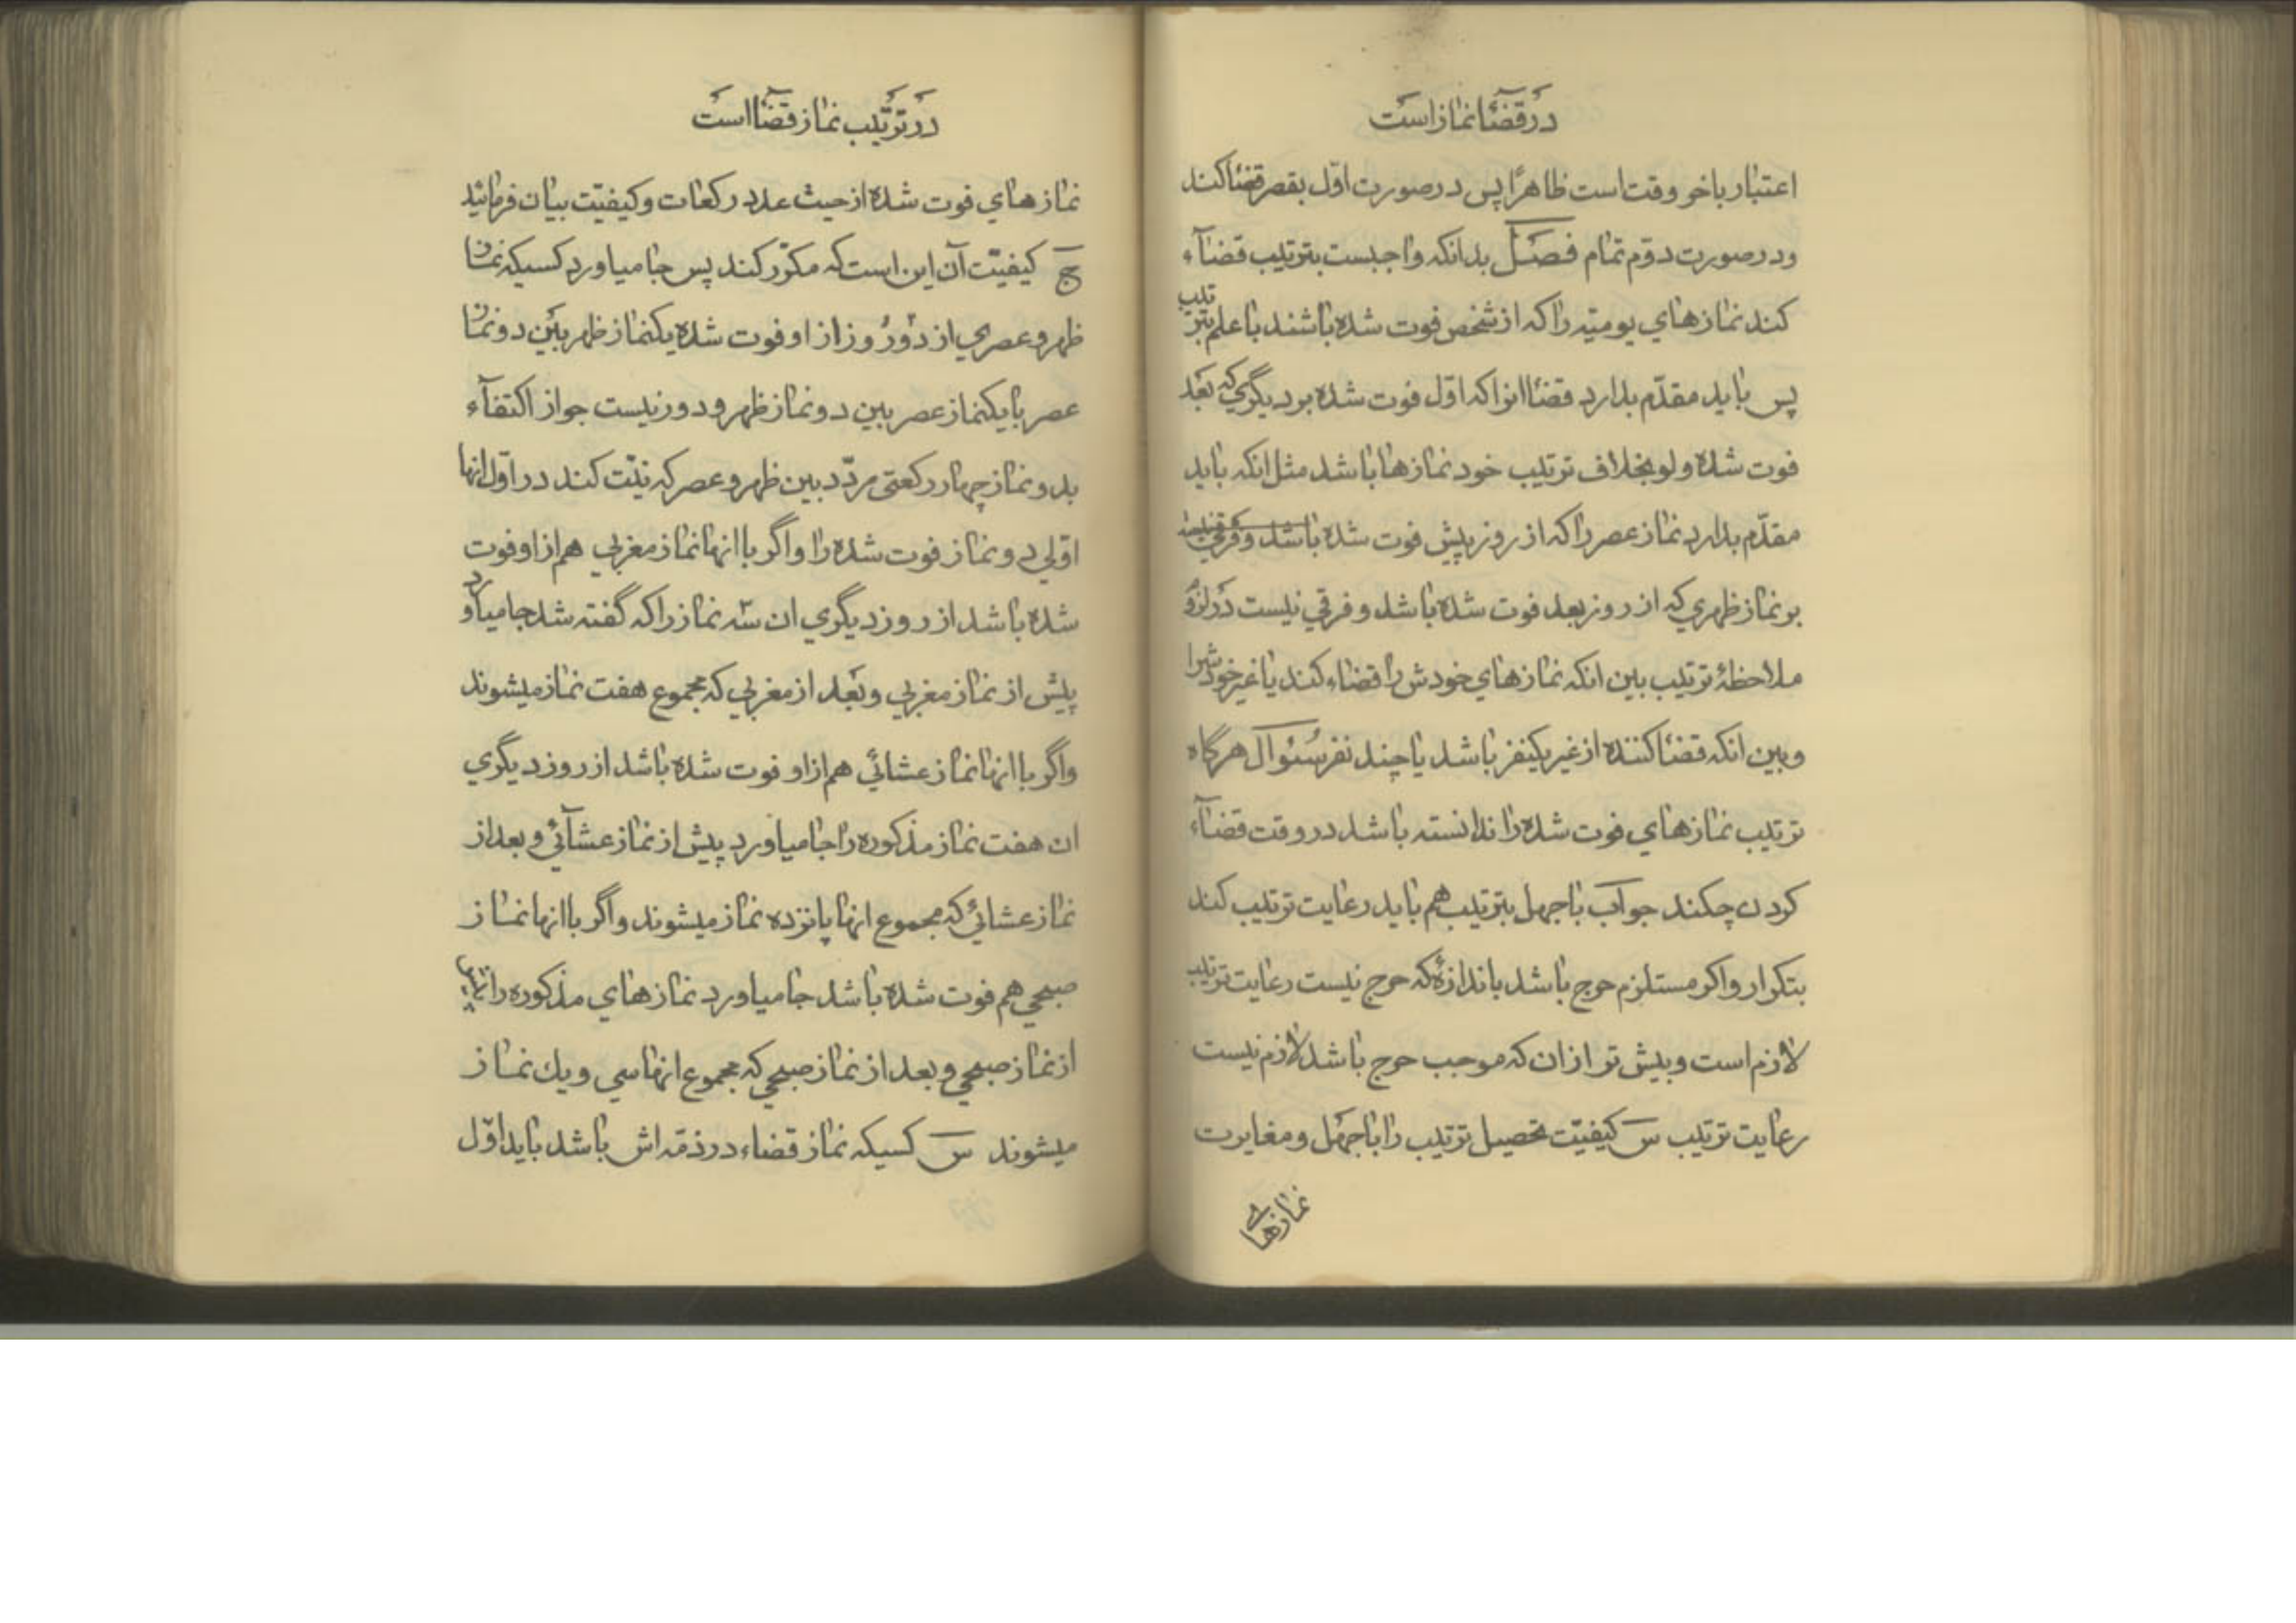 در قضٰا نمٰاز است
اعتبٰار باخر وقت است ظاهرًا پس در صورت اوّل بقصر قضٰا کند
ودر صورت دوّم تمٰام فصل بدانکه واجبست بترتیب قضٰآء
کند نمٰازهٰاي یومیّه رٰا که از شخص فوت شده بٰاشند بٰا علم بترتیب
پس بٰاید مقدّم بدٰارد قضٰا انرا که اوّل فوت شده بر دیگري که بعد
فوت شده ولو بخلاف ترتیب خود نمٰازهٰا بٰاشد مثل انکه بٰاید
مقدّم بدٰارد نمٰاز عصر رٰا که از روز پیش فوت شده بٰاشد
بر نمٰاز ظهري که از روز بعد فوت شده بٰاشد و فرقي نیست در لزوم
ملاحظهٔ ترتیب بین انکه نمٰازهٰاي خودش رٰا قضٰاء کند یٰا غیر خودشرا
وبین انکه قضٰا کننده از غیر یکنفر بٰاشد یٰا چند نفر سئوٰال هرگٰاه
ترتیب نمٰازهٰاي فوت شده رٰا ندٰانسته بٰاشد در وقت قضٰآء
کردن چکند جوٰاب بٰا جهل بترتیب هم بٰاید رعٰایت ترتیب کند
بتکرٰار واکر مستلزم حرج بٰاشد باندٰازهٔ که حرج نیست رعٰایت ترتیب
لازم است وبیش تر از ان که موجب حرج بٰاشد لازم نیست
رعٰایت ترتیب س کیفیّت تحصیل ترتیب رٰا بٰا جهل و مغایرت
نمٰازهٰاي
در ترتیب نمٰاز قضٰا است
نمٰازهٰاي فوت شده از حیث عدد رکعٰات وکیفیّت بیٰان فرمٰائید
ج کیفیّت آن این است که مکرّر کند پس جٰا میٰاورد کسیکه نمٰاز
ظهر و عصري از دو روز از او فوت شده یکنمٰاز ظهر بین دو نمٰاز
عصر یٰا یکنمٰاز عصر بین دو نمٰاز ظهر و دور نیست جوٰاز اکتفٰآء
بدو نمٰاز چهٰار رکعتی مردّد بین ظهر و عصر که نیّت کند در اوّل انهٰا
اوّلي دو نمٰاز فوت شده رٰا واگر بٰا انهٰا نمٰاز مغربي هم از او فوت
شده بٰاشد از روز دیگري ان سه نمٰاز رٰا که گفته شد جٰا میٰاورد
پیش از نمٰاز مغربي و بعد از مغربي که مجموع هفت نمٰاز میشوند
واگر بٰا انهٰا نمٰاز عشٰائي هم از او فوت شده بٰاشد از روز دیگري
ان هفت نمٰاز مذکوره رٰا جٰا میٰاورد پیش از نمٰاز عشٰآئي و بعد از
نمٰاز عشٰائي که مجموع انهٰا پٰانزده نمٰاز میشوند واگر بٰا انهٰا نمٰاز
صبحي هم فوت شده بٰاشد جٰا میٰاورد نمٰازهٰاي مذکوره رٰا
از نمٰاز صبحي و بعد از نمٰاز صبحي که مجموع انهٰا سي و یك نمٰاز
میشوند س کسیکه نمٰاز قضٰاء در ذمّه اش بٰاشد بٰاید اوّل